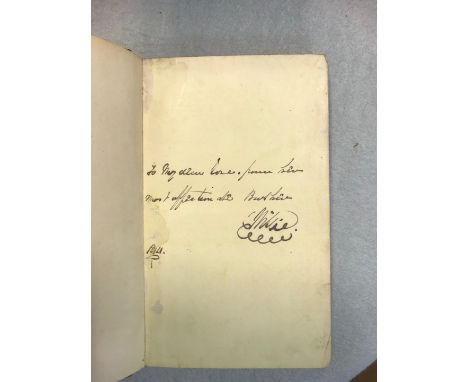 To My dear Love. from her
most affectionate Brother
Willie.
1864.